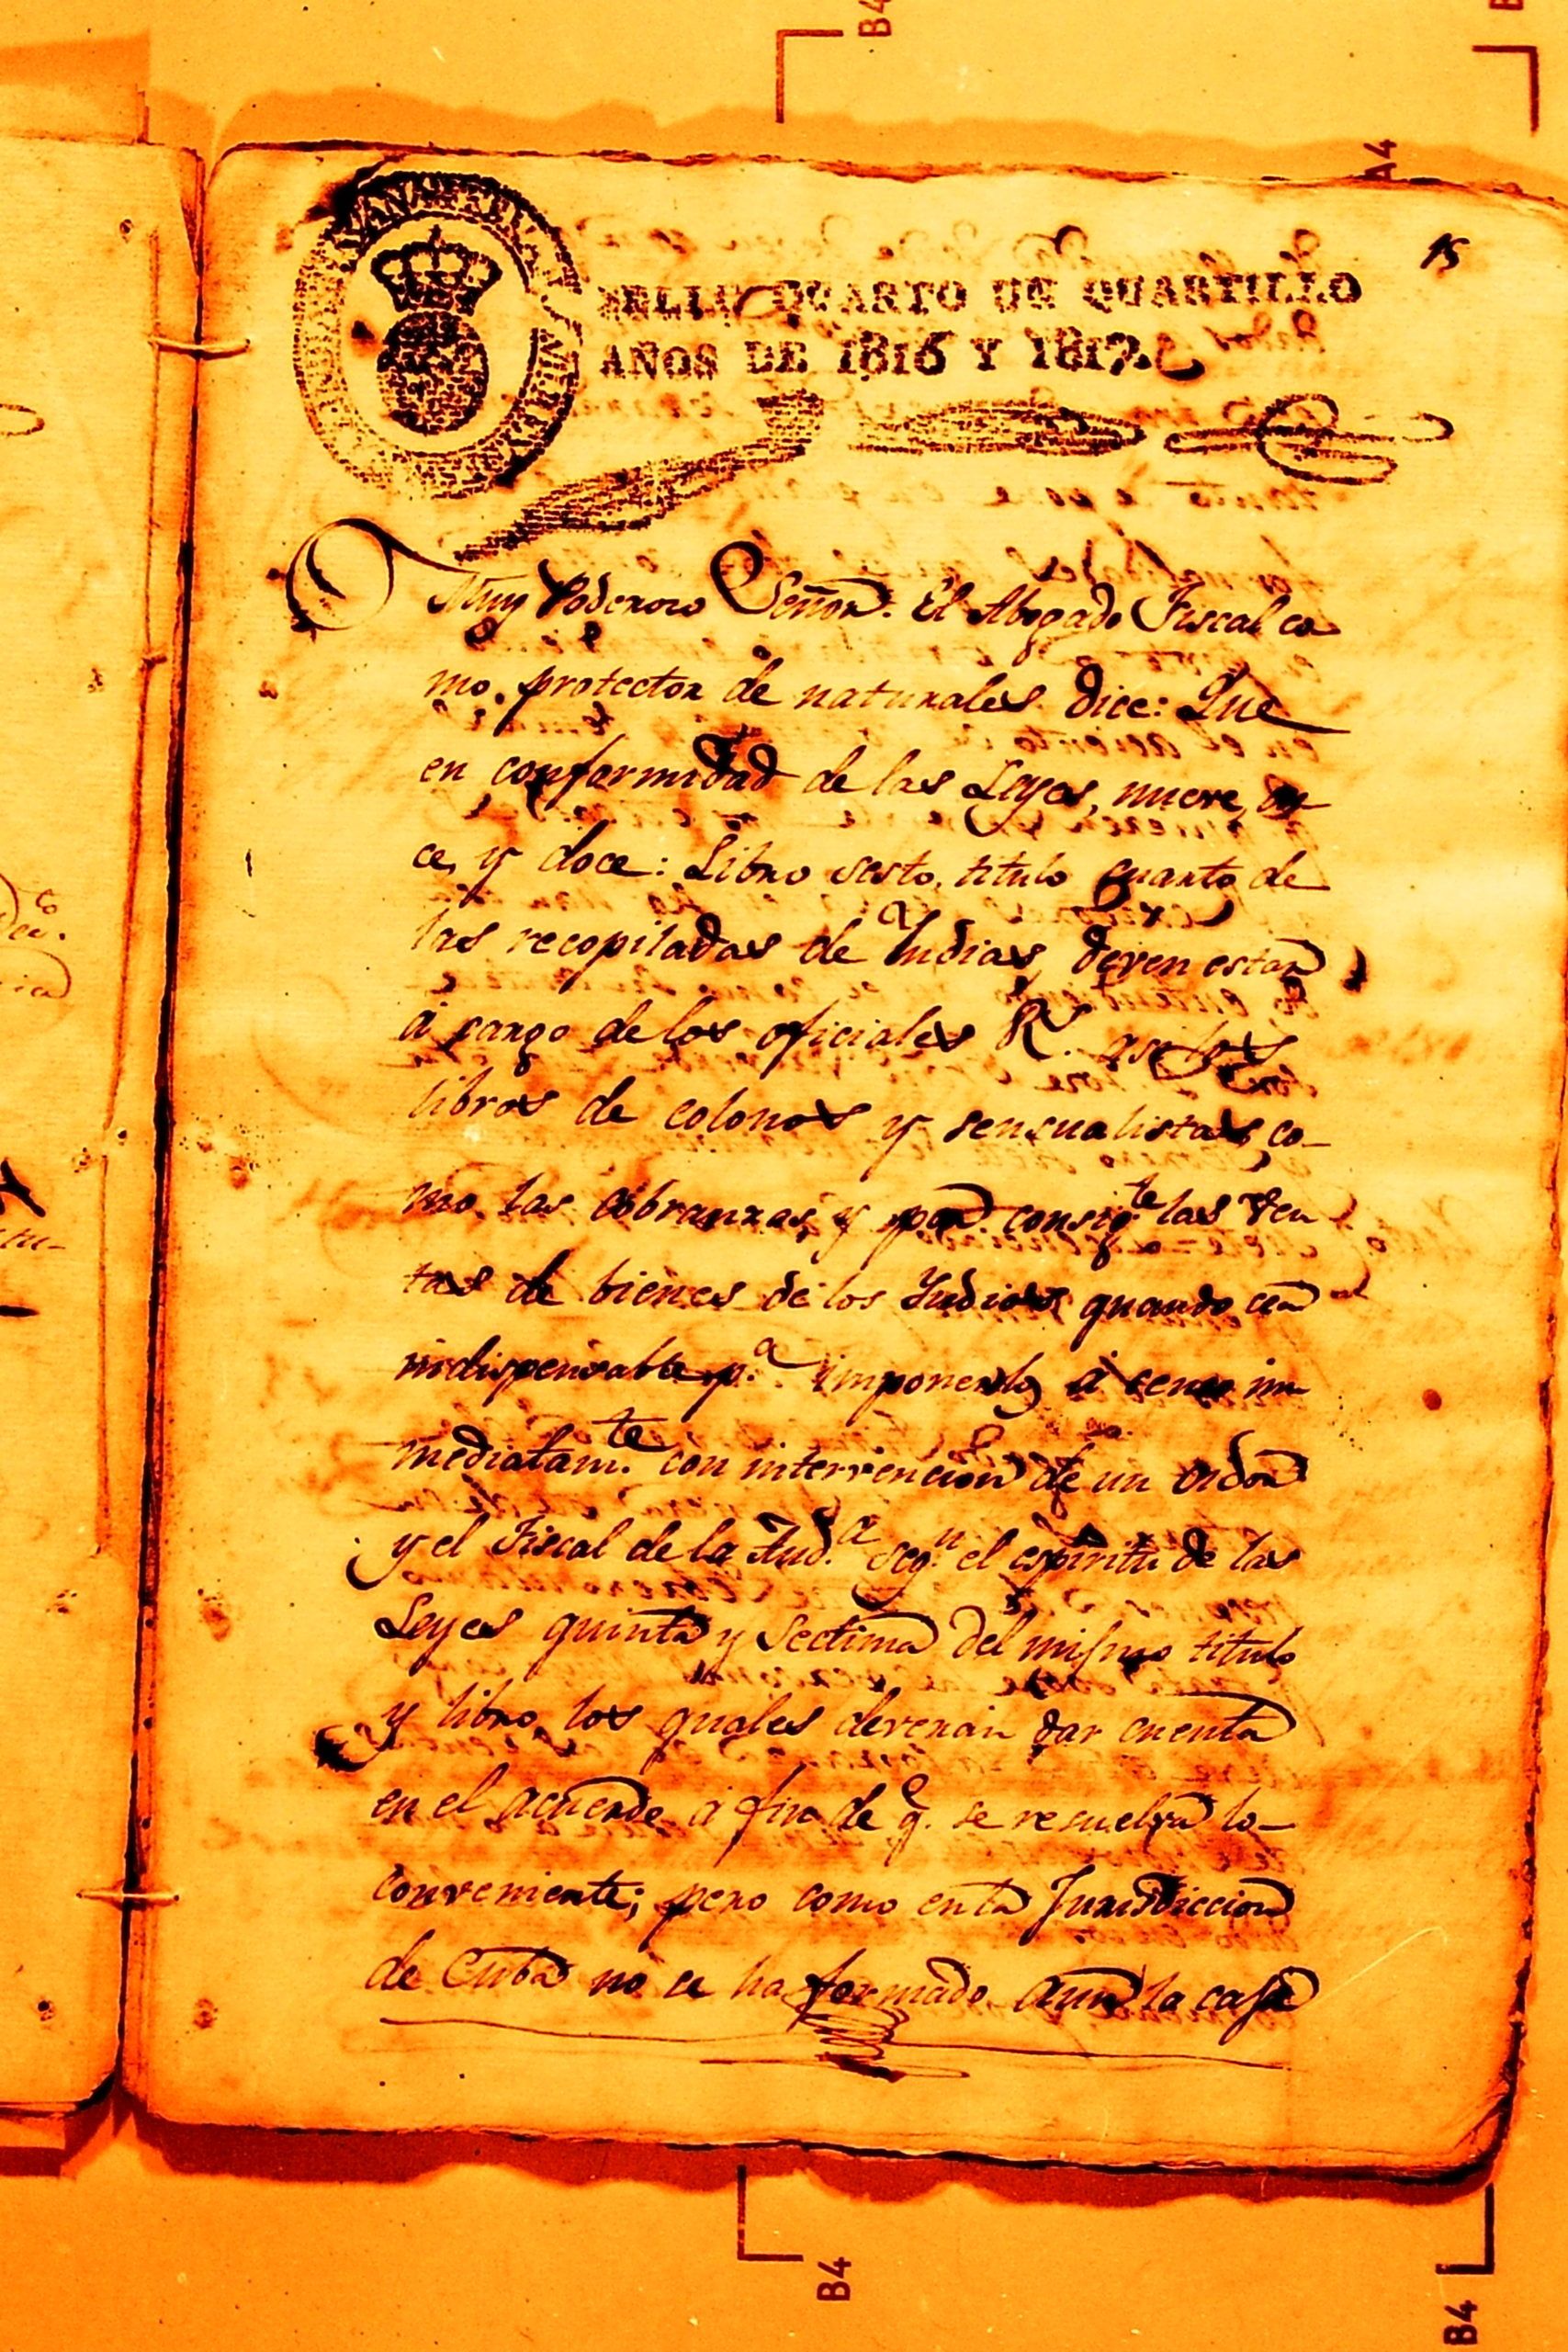 15
SELLO QUARTO UN QUARTILLO
AÑOS DE 1816 Y 1817.
Muy Poderoso Señor: El Abogado Fiscal co
mo protector de naturales dice: Que
en conformidad de las Leyes, nueve, on
ce, y doce: Libro sesto, titulo quarto de
las recopiladas de Yndias, deven estar
á cargo de los oficiales R.s asi los
libros de colonos y sensualistas, co-
mo las cobranzas, y por consig.te las ven
tas de bienes de los Yndios quando cea
indispensable p.a imponerlos á censo in
mediatam.te con intervencion de un oidor
y el Fiscal de la Aud.a seg.n el espiritu de las
Leyes quinta y Sectima del mismo titulo
y libro, los quales deverán dar cuenta
en el acuerdo a fin de q.e se resuelva lo-
conveniente; pero como en la Jurisdiccion
de Cuba no ce ha formado aun la casa
B4
A4
B4
B4